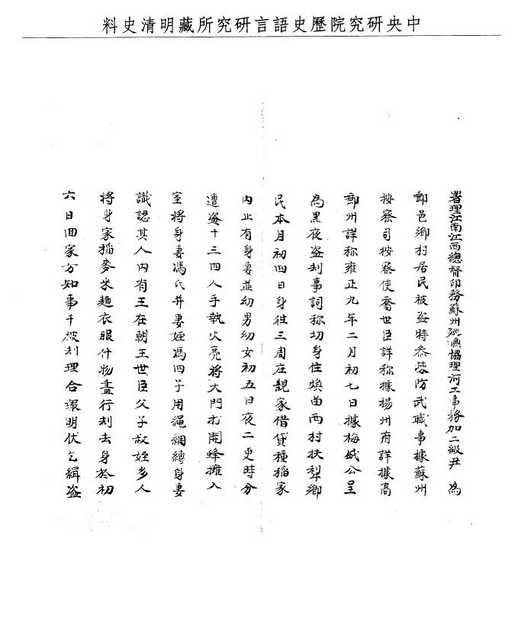 中央研究院歷史語言研究所藏明清史料
署理江南江西總督印務蘇州巡撫協理河工事務加二級尹 為
鄉村居民被盜特參疎防武職事據蘇州
按察司按察使喬世臣詳稱據揚州府詳據高
郵州詳稱雍正九年二月初七日據梅盛公呈
為黑夜盜刦事詞稱切身住焕曲西村扶犁鄉
民本月初四日身往三周庄親家借貸種稻家
內止有身妻並幼男幼女初五日夜二更時分
遭盜十三四人手執火亮將大門打開蜂擁入
室將身妻馮氏并妻姪馮四子用繩綑縛身妻
識認其人內有王在朝王世臣父子叔姪多人
將身家稻麥米麵衣服什物盡行刦去身於初
六日回家方知事干被刦理合環明伏乞緝盜